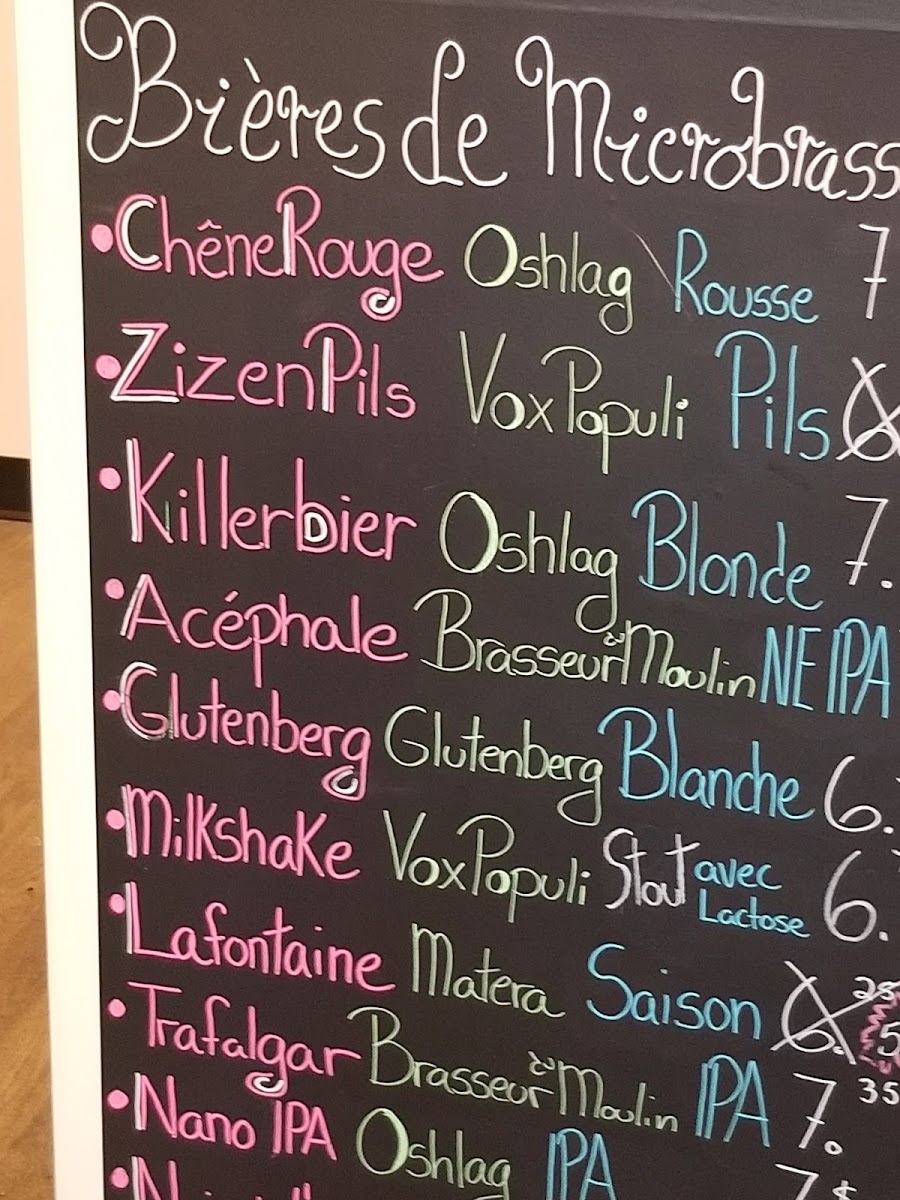 Bières de Microbrass
• Chêne Rouge Oshlag Rousse 7
• Zizen Pils Vox Populi Pils 6.
• Killerbier Oshlag Blonde 7.
• Acéphale Brasseur du Moulin NEIPA
• Glutenberg Glutenberg Blanche 6.
• Milkshake Vox Populi Stout avec Lactose 6.
• Lafontaine Matera Saison 6. 25 5
• Trafalgar Brasseur du Moulin IPA 7. 35
• Nano IPA Oshlag IPA 7.